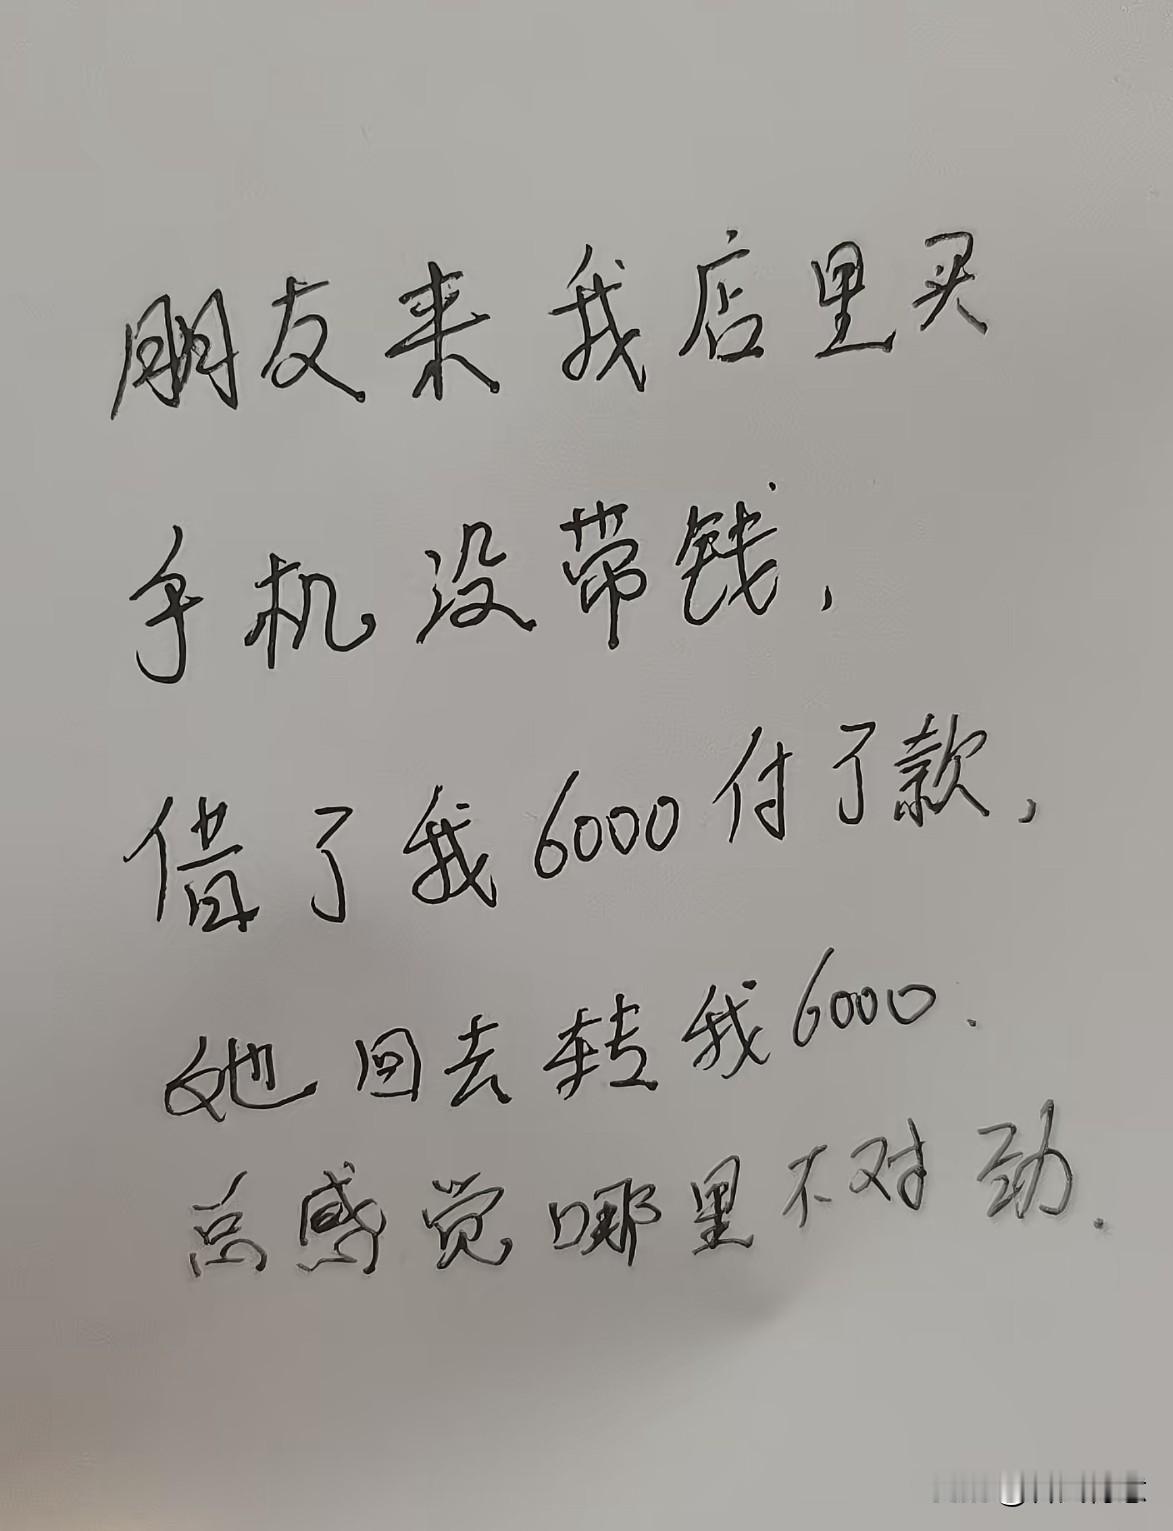 朋友来我店里买
手机没带钱，
借了我6000付了款，
她回去转我6000.
总感觉哪里不对劲.